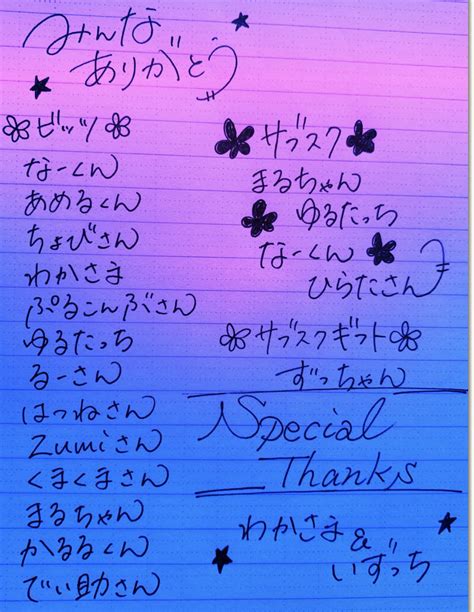 みんな
ありがとう
ビッツ
なーくん
あめるくん
ちょびさん
わかさま
ぷるこんぶさん
ゆるたっち
るーさん
はつねさん
Zumiさん
くまくまさん
まるちゃん
かるるくん
でい助さん
サブスク
まるちゃん
ゆるたっち
なーくん
ひらたさん
サブスクギフト
ずっちゃん
Special
Thanks
わかさま
&
いずっち